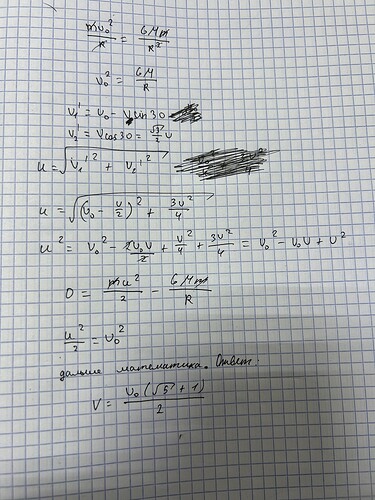 mv₀²/R = GMm/R²
v₀² = GM/R
v₁' = v₀ - v sin 30
v₂' = v cos 30 = √3/2 v
u = √(v₁'² + v₂'²)
u = √((v₀ - v/2)² + 3v²/4)
u² = v₀² - 2v₀v/2 + v²/4 + 3v²/4 = v₀² - v₀v + v²
0 = mu²/2 - GMm/R
u²/2 = v₀²
дальше математика. Ответ:
v = v₀(√5 + 1)/2